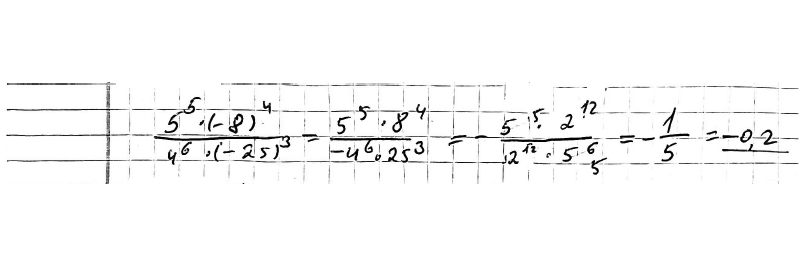 5^5·(-8)^4 / 4^6·(-25)^3 = 5^5·8^4 / -4^6·25^3 = - 5^5·2^12 / 2^12·5^6 5 = - 1/5 = -0,2